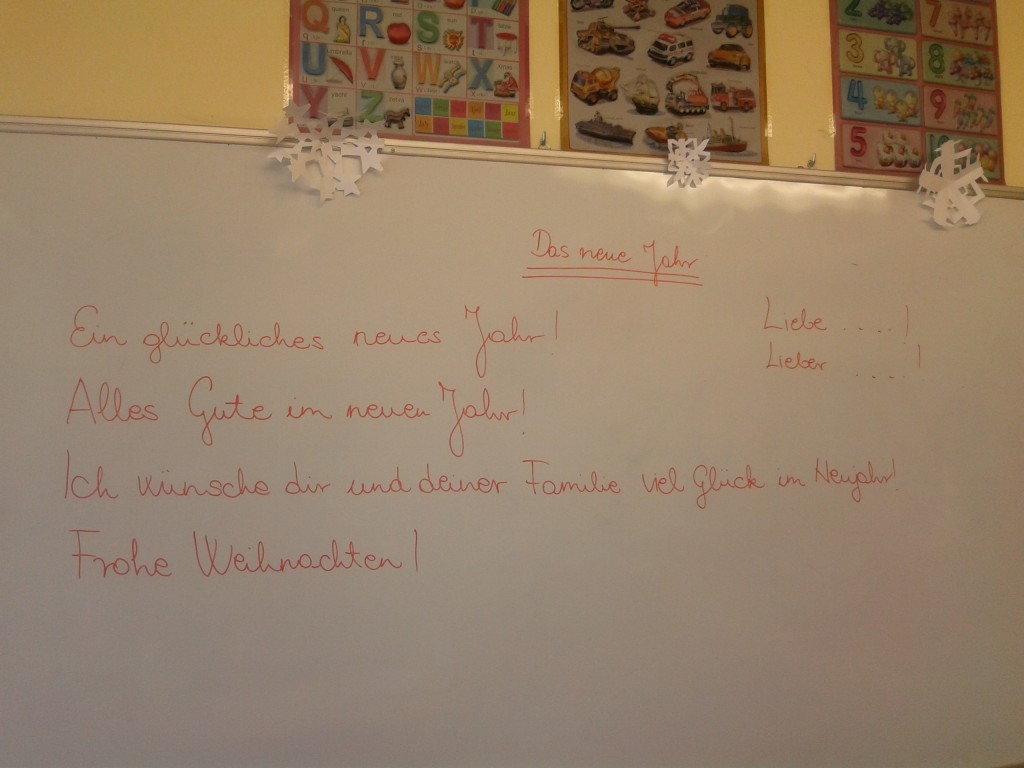 Q R S T
U V W X
Y Z
2 7
3 8
4 9
5 10
Das neue Jahr
Ein glückliches neues Jahr!
Liebe ....!
Lieber ....!
Alles Gute im neuen Jahr!
Ich wünsche dir und deiner Familie viel Glück im Neujahr!
Frohe Weihnachten!